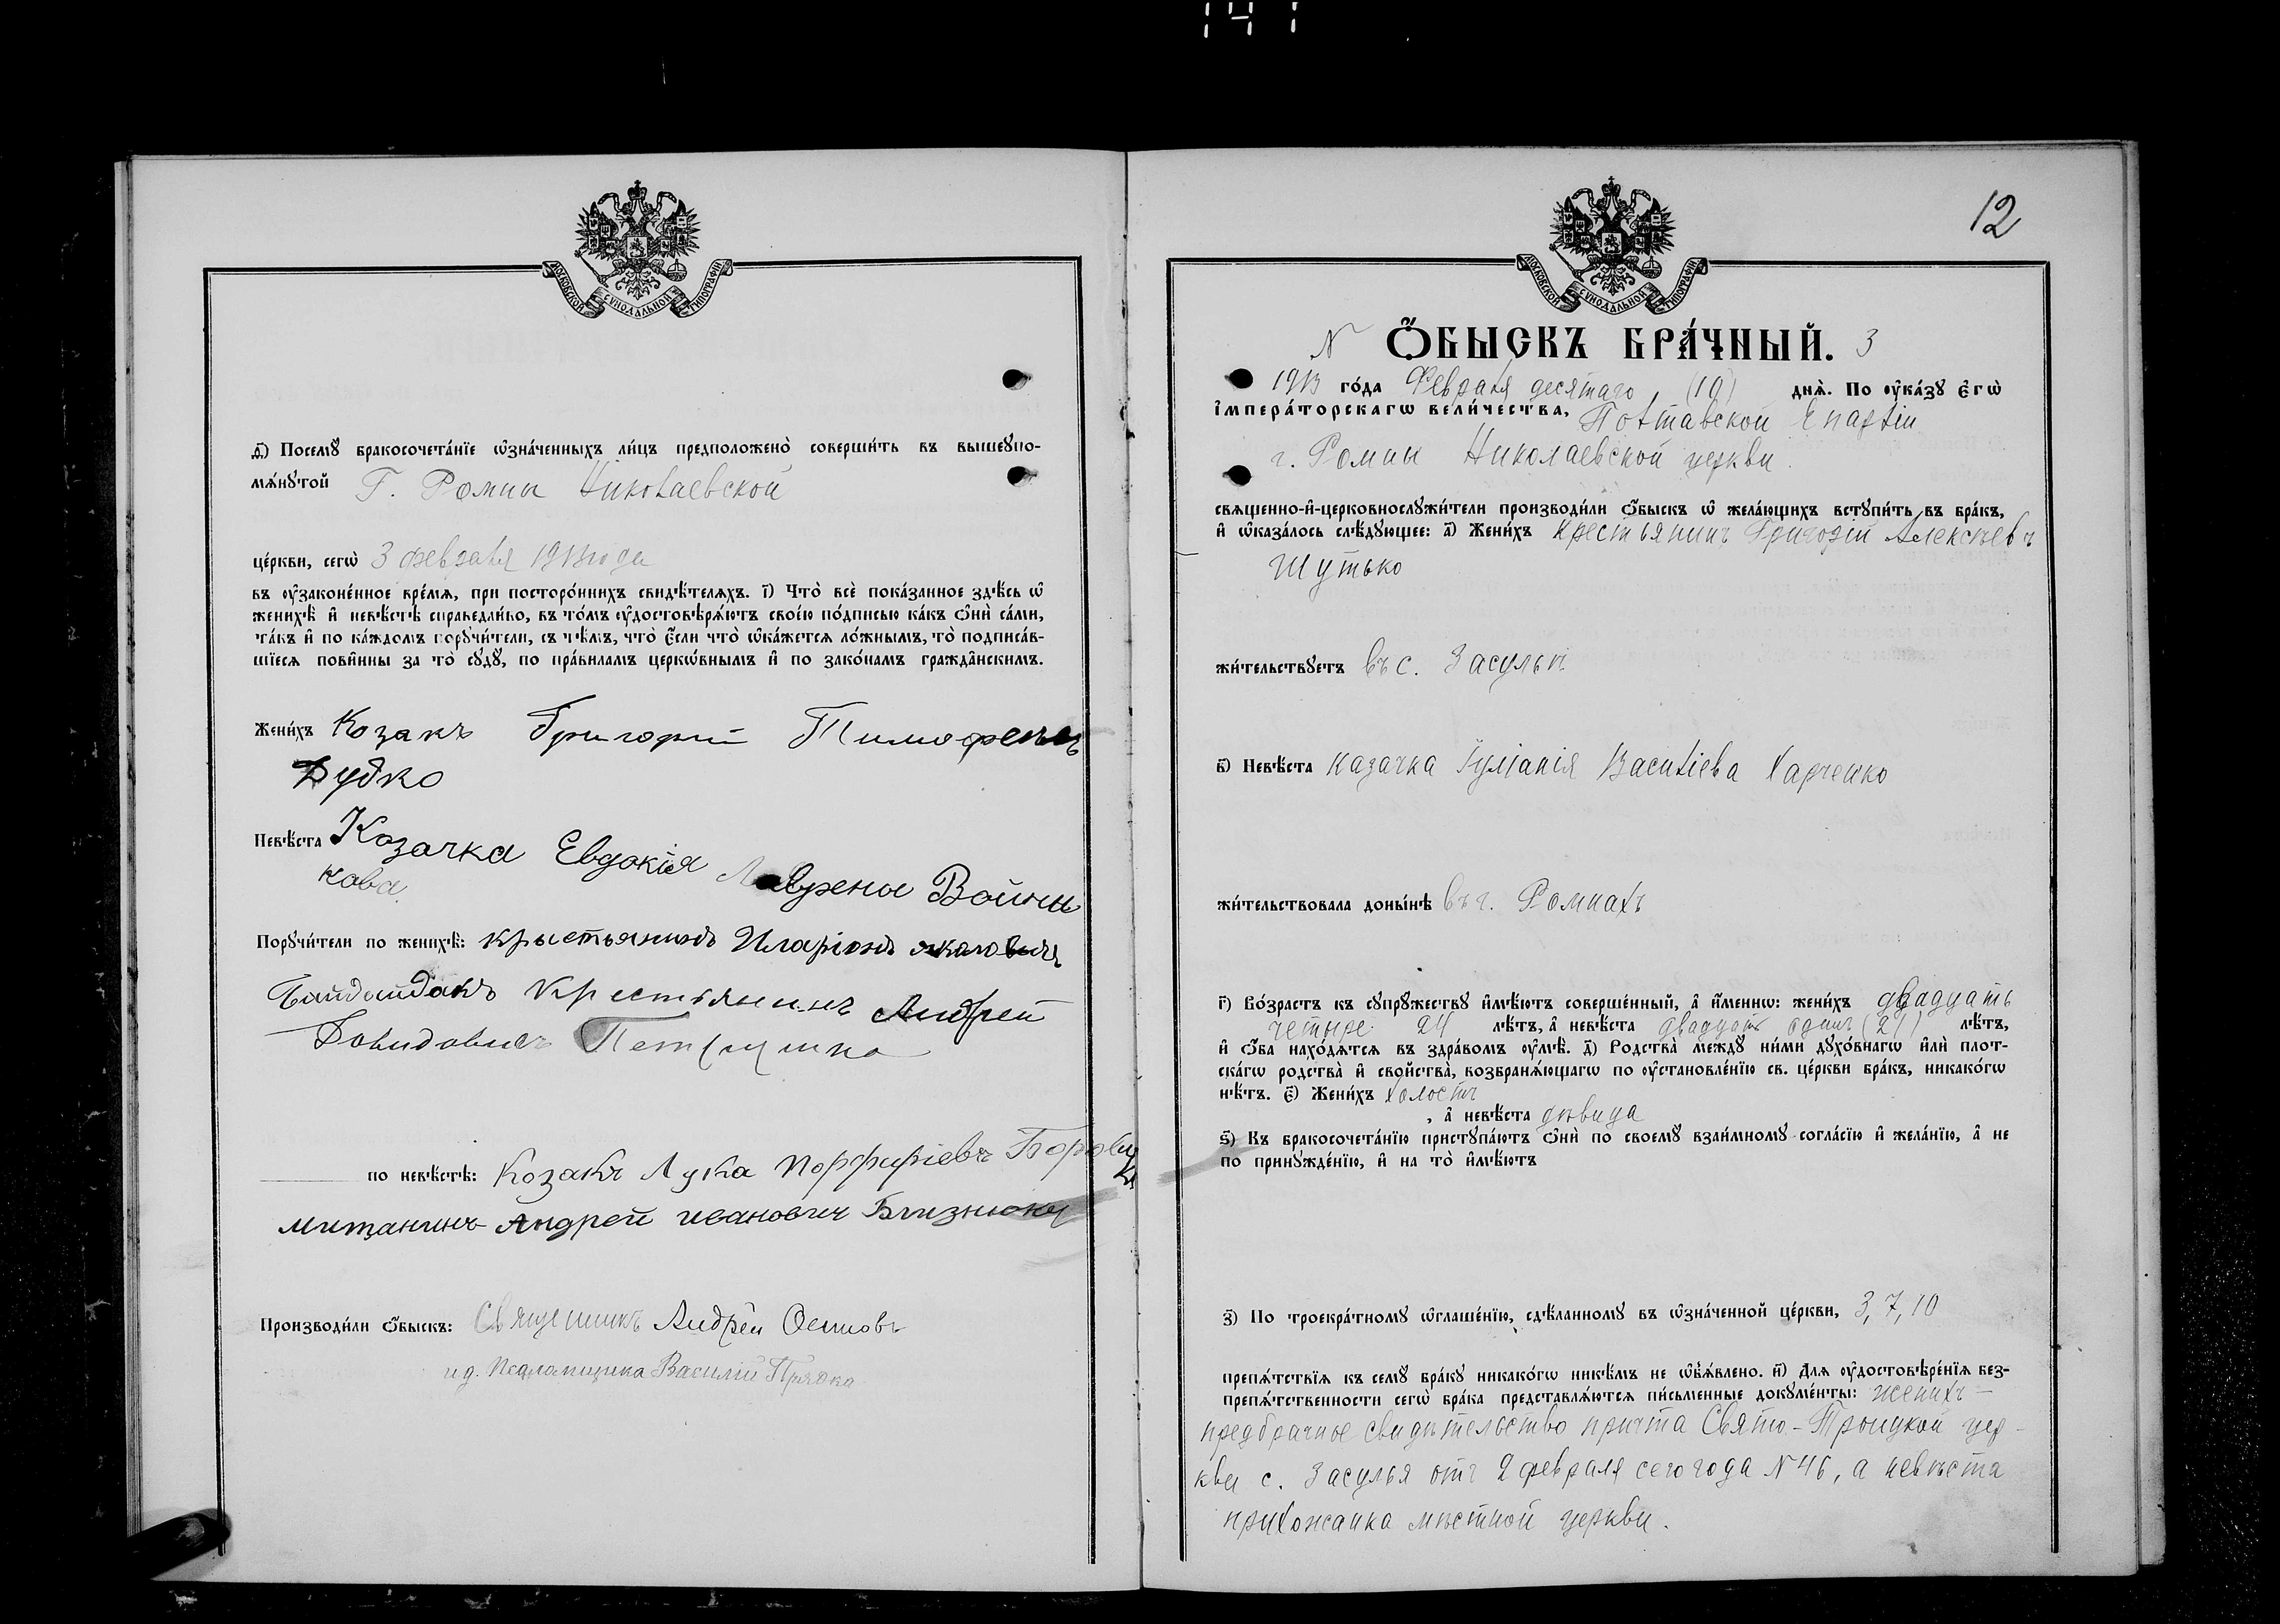 141
МОСКОВСКОЙ СѴНОДАЛЬНОЙ ТИПОГРАФІИ
д҃і) Посемꙋ бракосочета́нїе ѡ҆зна́ченныхъ ли́цъ предположено̀ соверши́ть въ вышеꙋпо-
мѧ́нꙋтой Г. Ромны Николаевской
це́ркви, сегѡ̀ 3 февраля 1913 года
въ ᲂу҆законе́нное вре́мѧ, при посторо́ннихъ свидѣ́телѧхъ. і҃) Что̀ всѐ пока́занное здѣ́сь ѡ҆
женихѣ̀ и҆ невѣ́стѣ справедли́во, въ то́мъ ᲂу҆достовѣрѧ́ютъ свое́ю по́дписью ка́къ ѻ҆нѝ са́ми,
та́къ и҆ по ка́ждомъ порꙋчи́тели, съ тѣ́мъ, что̀ є҆́сли что̀ ѡ҆ка́жетсѧ ло́жнымъ, то̀ подписа́в-
шїесѧ пови́нны за то̀ сꙋдꙋ̀, по пра́виламъ церко́внымъ и҆ по зако́намъ гражда́нскимъ.
Жени́хъ Козакъ Григорій Тимофеевъ
Дудко
Невѣ́ста Козачка Евдокія Войни
кова
Порꙋчи́тели по женихѣ̀: крыстьянинъ Иларіонъ
Байдайдакъ Крестьянинъ Андрей
Давидовичъ
по невѣ́стѣ: Козакъ Лука Порфиріевъ
мищанинъ Андрей иванович Близнюкъ
Производи́ли ѻ҆́быскъ: Священникъ Андрей Осиповъ
и д. Псаломщика Василій Прядка
12
МОСКОВСКОЙ СѴНОДАЛЬНОЙ ТИПОГРАФІИ
N Ѻ҆́БЫСКЪ БРА́ЧНЫЙ. 3
1913 го́да Февраля десятаго (10) днѧ̀. По ᲂу҆ка́зꙋ є҆гѡ̀
і҆мпера́торскагѡ вели́чества, Полтавской Епархіи
г. Ромны Николаевской церкви.
свѧщенно-и҆-церковнослꙋжи́тели производи́ли ѻ҆́быскъ ѡ҆ жела́ющихъ встꙋпи́ть въ бра́къ,
и҆ ѡ҆каза́лось слѣ́дꙋющее: а҃) Жени́хъ крестьянинъ Григорій Алексѣевъ
Шутько
жи́тельствꙋетъ въ с. Засульи
в҃) Невѣ́ста казачка Іуліанія Василіева Харченко
жи́тельствовала доны́нѣ въ г. Ромнахъ
г҃) Во́зрастъ къ сꙋпрꙋ́жествꙋ и҆мѣ́ютъ соверше́нный, а҆ и҆́меннѡ: жени́хъ двадцать
четыре 24 лѣ́тъ, а҆ невѣ́ста двадцать одинъ (21) лѣ́тъ,
и҆ ѻ҆́ба нахо́дѧтсѧ въ здра́вомъ ᲂу҆мѣ̀. д҃) Родства̀ междꙋ̀ ни́ми дꙋхо́внагѡ и҆лѝ плот-
ска́гѡ родства̀ и҆ сво́йства, возбранѧ́ющагѡ по ᲂу҆становле́нїю св. це́ркви бра́къ, никако́гѡ
нѣ́тъ. є҃) Жени́хъ холостъ
, а҆ невѣ́ста дѣвица
ѕ҃) Къ бракосочета́нїю пристꙋпа́ютъ ѻ҆нѝ по своемꙋ̀ взаи́мномꙋ согла́сїю и҆ жела́нїю, а҆ не
по принꙋжде́нїю, и҆ на то̀ и҆мѣ́ютъ
з҃) По троекра́тномꙋ ѡ҆глаше́нїю, сдѣ́ланномꙋ въ ѡ҆зна́ченной це́ркви, 3, 7, 10
препѧ́тствїѧ къ семꙋ̀ бра́кꙋ никако́гѡ никѣ́мъ не ѡ҆б̾ѧ́влено. и҃) Длѧ ᲂу҆достовѣре́нїѧ без-
препѧ́тственности сегѡ̀ бра́ка представлѧ́ютсѧ пи́сьменные докꙋме́нты: женихъ –
предбрачное свидѣтельство причта Свято-Троицкой цер-
кви с. Засулья отъ 2 февраля сего года N 46, а невѣста
прихожанка мѣстной церкви.